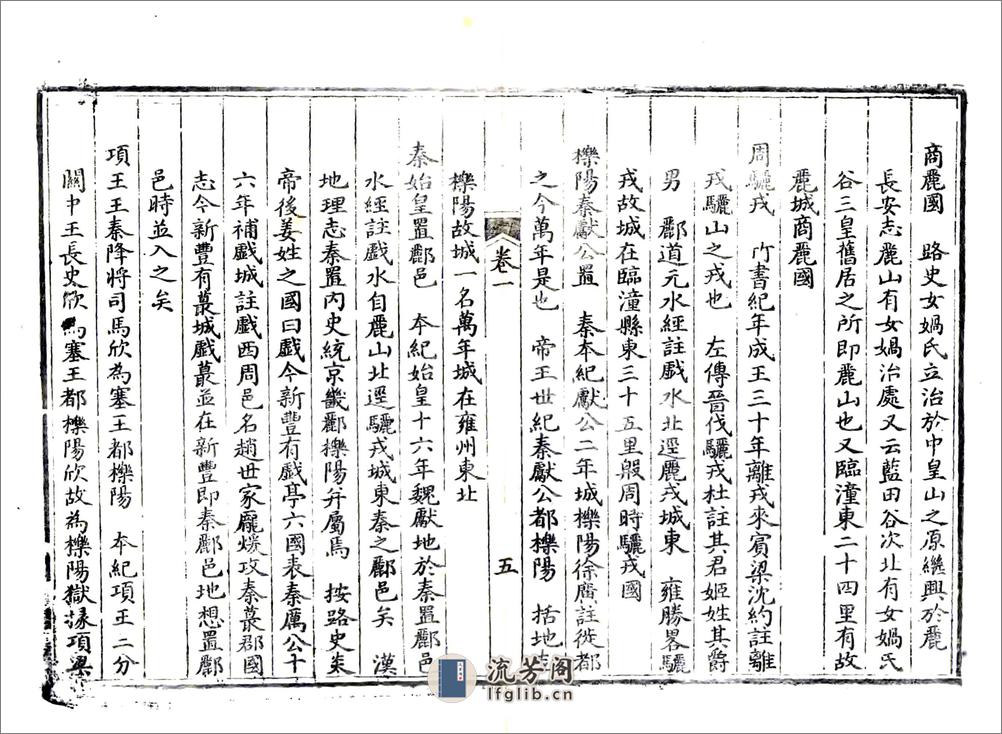 商麗國　路史女媧氏立治於中皇山之原繼興於麗
長安志麗山有女媧治處又云藍田谷次北有女媧氏
谷三皇舊居之所即麗山也又臨潼東二十四里有故
麗城商麗國
周驪戎　竹書紀年成王三十年離戎來賓梁沈約註離
戎驪山之戎也　左傳晉伐驪戎杜註其君姬姓其爵
男　酈道元水經註戲水北逕麗戎城東　雍勝畧驪
戎故城在臨潼縣東三十五里殷周時驪戎國
櫟陽秦獻公置　秦本紀獻公二年城櫟陽徐廣註徙都
之今萬年是也　帝王世紀秦獻公都櫟陽　括地志
卷一
五
櫟陽故城一名萬年城在雍州東北
秦始皇置酈邑　本紀始皇十六年魏獻地於秦置酈邑
水經註戲水自麗山北逕驪戎城東秦之酈邑矣　漢
地理志秦置內史統京畿酈櫟陽并屬焉　按路史炎
帝後姜姓之國曰戲今新豐有戲亭六國表秦厲公十
六年補戲城註戲西周邑名趙世家龐煖攻秦蕞郡國
志今新豐有蕞城戲蕞並在新豐即秦酈邑地想置酈
邑時並入之矣
項王王秦降將司馬欣為塞王都櫟陽　本紀項王二分
關中王長史欣為塞王都櫟陽欣故為櫟陽獄掾項梁
流芳阁
lfglib.cn